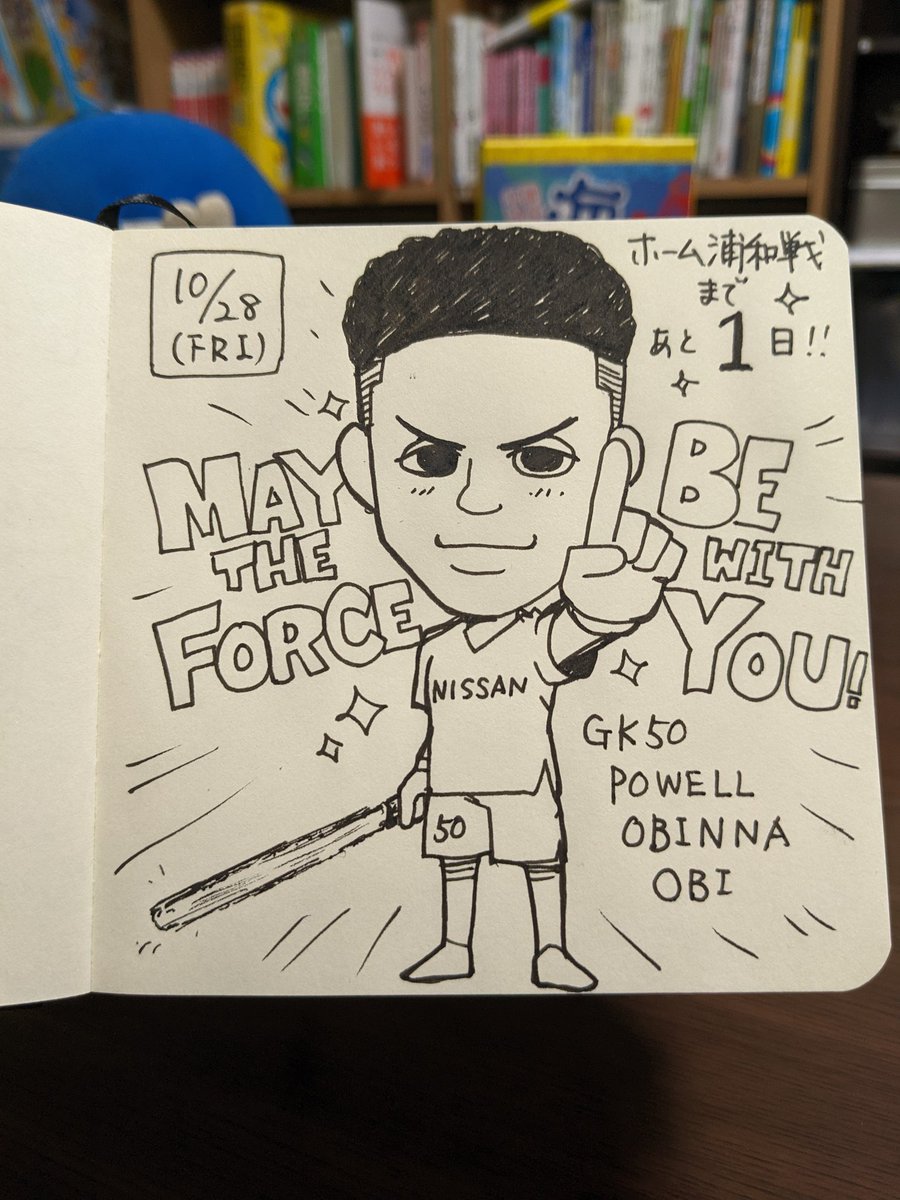 10/28
(FRI)
ホーム浦和戦
まで
あと1日!!
MAY
THE
FORCE
BE
WITH
YOU!
NISSAN
50
GK50
POWELL
OBINNA
OBI